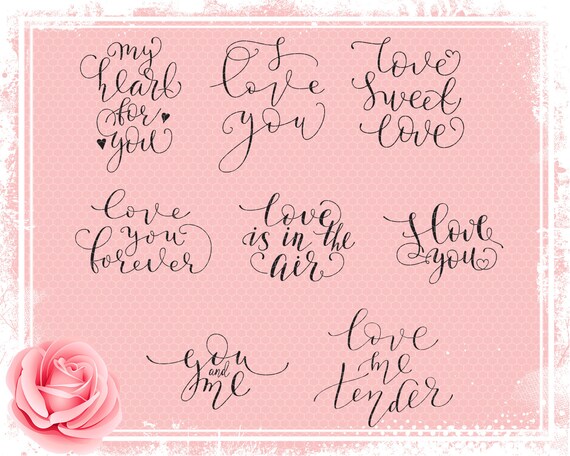 my
heart
for
you
I
love
you
love
sweet
love
love
you
forever
love
is in the
air
I love
you
you
and
me
love
me
tender